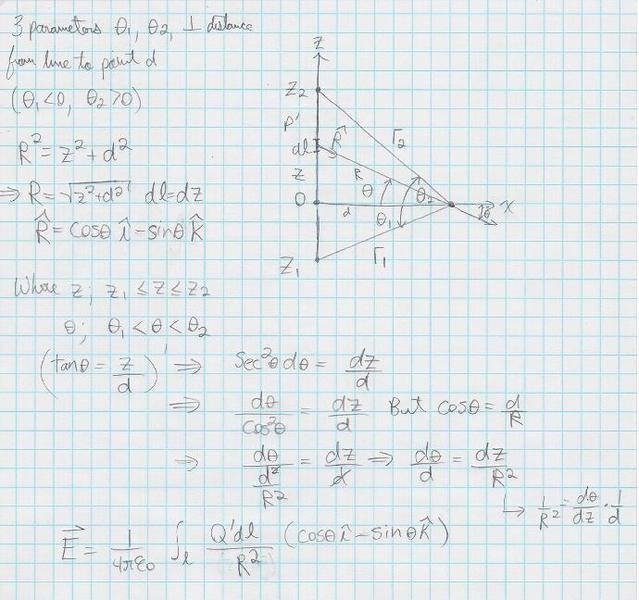 3 parameters θ₁, θ₂, ⊥ distance
from line to point d
(θ₁<0, θ₂>0)
R² = z² + d²
⇒ R = √(z²+d²) dl=dz
R̂ = cosθ î – sinθ k̂
z
z₂
P'
dl
R̂
r₂
z
R
θ
θ₂
0
d
θ₁
x
z₁
r₁
Where z; z₁ ≤ z ≤ z₂
θ; θ₁ < θ < θ₂
(tanθ = z/d)' ⇒ sec²θ dθ = dz/d
⇒ dθ/cos²θ = dz/d But cosθ = d/R
⇒ dθ/(d²/R²) = dz/d ⇒ dθ/d = dz/R²
↳ 1/R² = dθ/dz · 1/d
E⃗ = 1/4πε₀ ∫ₗ Q'dl/R² (cosθ î – sinθ k̂)